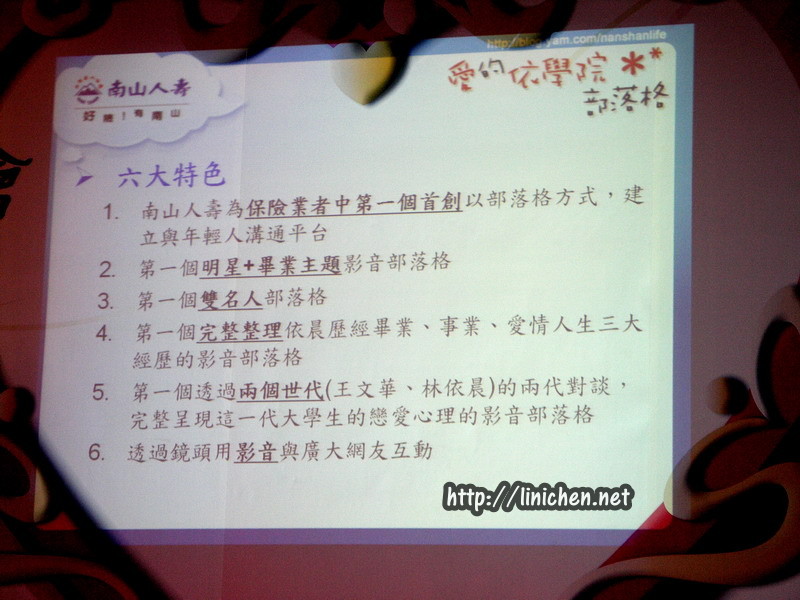 http://blog.yam.com/nanshanlife
南山人壽
好險!有南山
愛的依學院**
部落格
六大特色
1. 南山人壽為保險業者中第一個首創以部落格方式,建
立與年輕人溝通平台
2. 第一個明星+畢業主題影音部落格
3. 第一個雙名人部落格
4. 第一個完整整理依晨歷經畢業、事業、愛情人生三大
經歷的影音部落格
5. 第一個透過兩個世代(王文華、林依晨)的兩代對談,
完整呈現這一代大學生的戀愛心理的影音部落格
6. 透過鏡頭用影音與廣大網友互動
http://linichen.net